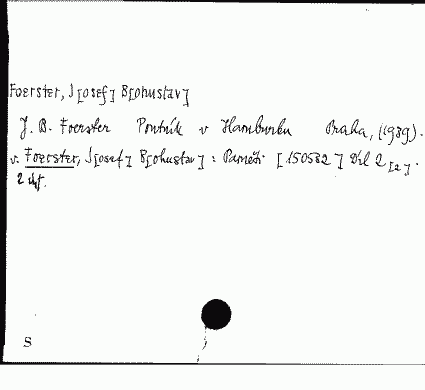 Foerster, J[osef] B[ohuslav]
J. B. Foerster Poutník v Hamburku Praha, (1939).
v. Foerster, J[osef] B[ohuslav] : Paměti [150582] Díl 2 [2].
2 výt.
S